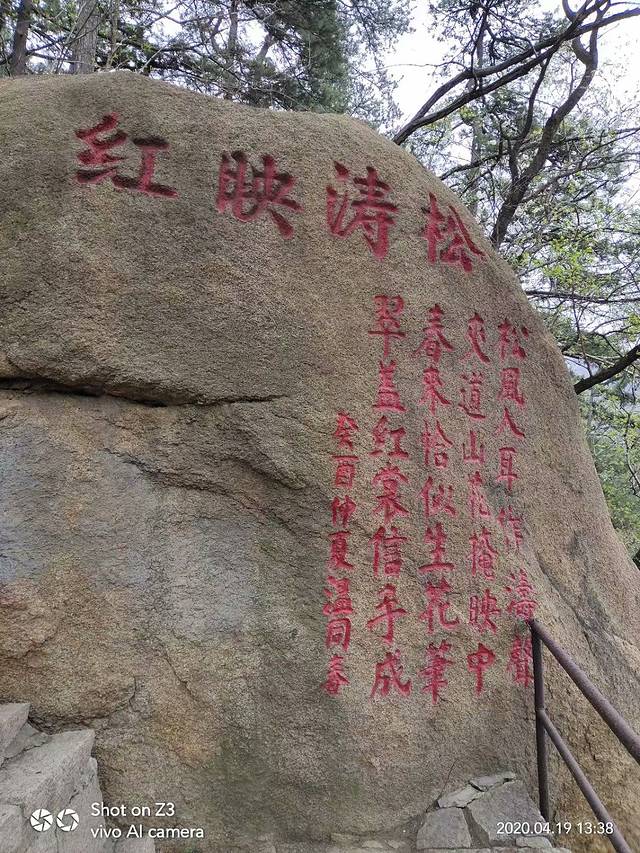 松涛映红
松風入耳作濤聲
夾道山花掩映中
春來恰似生花筆
翠蓋紅裳信手成
癸酉仲夏温同春
Shot on Z3
vivo AI camera
2020.04.19 13:38